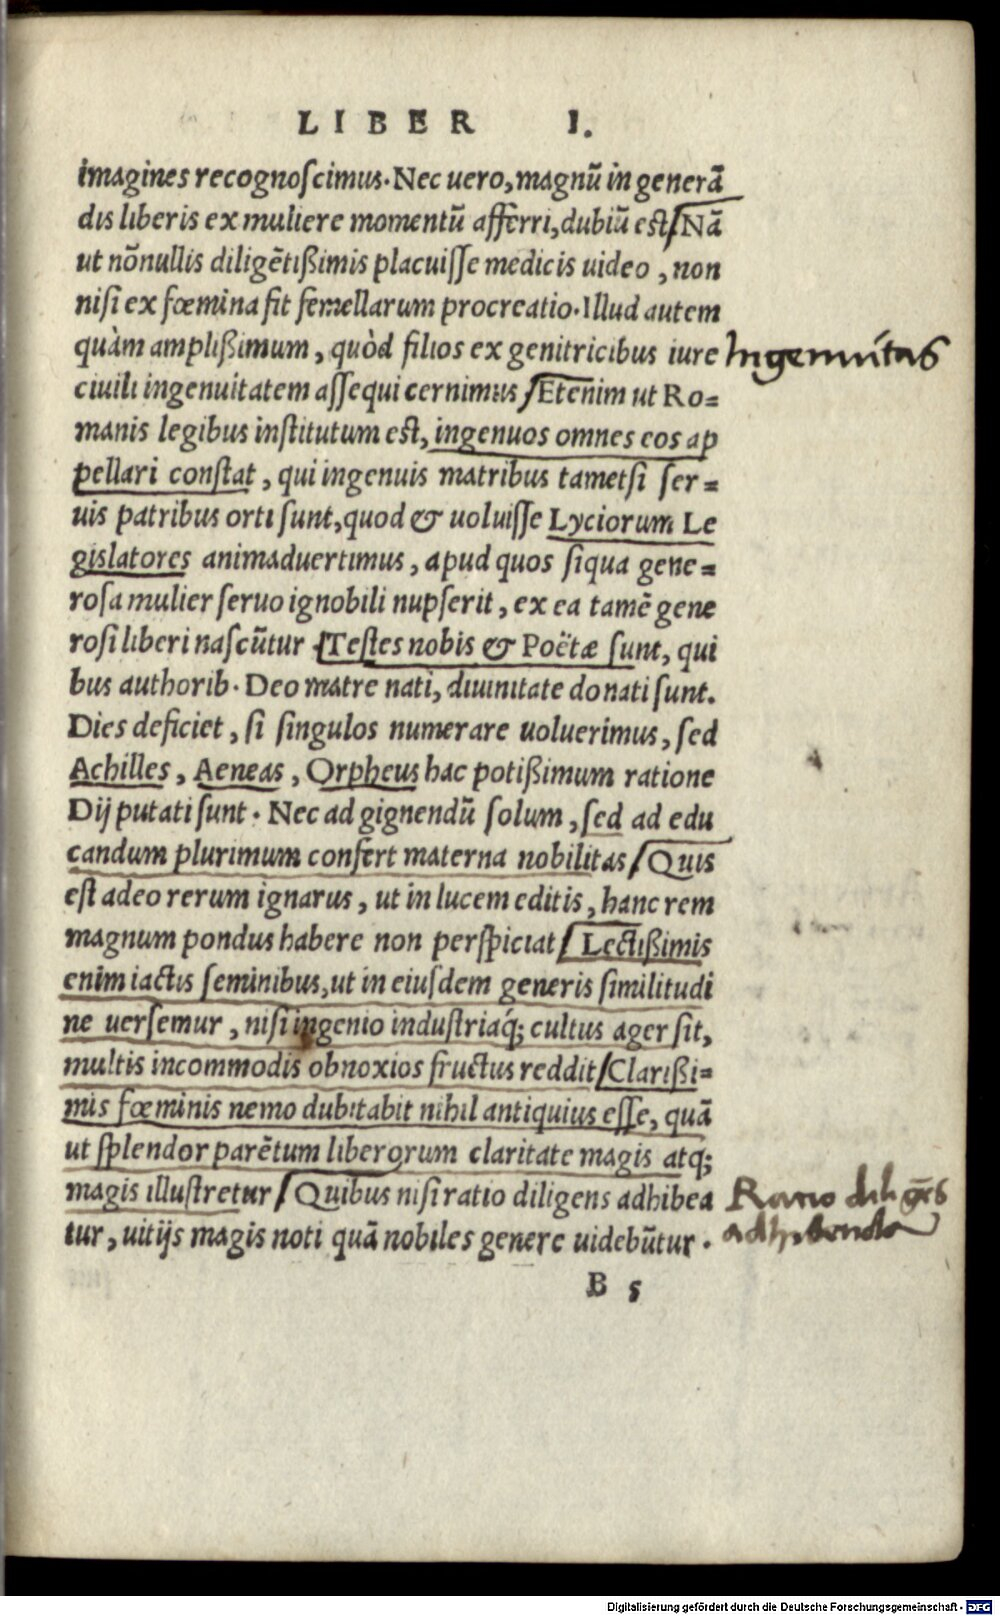 LIBER I.
imagines recognoscimus. Nec uero, magnũ in generã
dis liberis ex muliere momentũ afferri, dubiũ est. Nã
ut nõnullis diligẽtißimis placuisse medicis uideo, non
nisi ex fœmina fit femellarum procreatio. Illud autem
quàm amplißimum, quòd filios ex genitricibus iure
Ingenuitas
ciuili ingenuitatem assequi cernimus. Etenim ut Ro=
manis legibus institutum est, ingenuos omnes eos ap
pellari constat, qui ingenuis matribus tametsi ser=
uis patribus orti sunt, quod & uoluisse Lyciorum Le
gislatores animaduertimus, apud quos siqua gene=
rosa mulier seruo ignobili nupserit, ex ea tamẽ gene
rosi liberi nascũtur. Testes nobis & Poëtæ sunt, qui
bus authorib. Deo matre nati, diuinitate donati sunt.
Dies deficiet, si singulos numerare uoluerimus, sed
Achilles, Aeneas, Orpheus hac potißimum ratione
Dij putati sunt. Nec ad gignendũ solum, sed ad edu
candum plurimum confert materna nobilitas. Quis
est adeo rerum ignarus, ut in lucem editis, hanc rem
magnum pondus habere non perspiciat. Lectißimis
enim iactis seminibus, ut in eiusdem generis similitudi
ne uersemur, nisi ingenio industriaq́; cultus ager sit,
multis incommodis obnoxios fructus reddit. Clarißi=
mis fœminis nemo dubitabit nihil antiquius esse, quã
ut splendor parẽtum liberorum claritate magis atq;
magis illustretur. Quibus nisi ratio diligens adhibea
Ratio diligẽs
tur, uitijs magis noti quã nobiles genere uidebũtur.
adhibenda
B 5
Digitalisierung gefördert durch die Deutsche Forschungsgemeinschaft - DFG